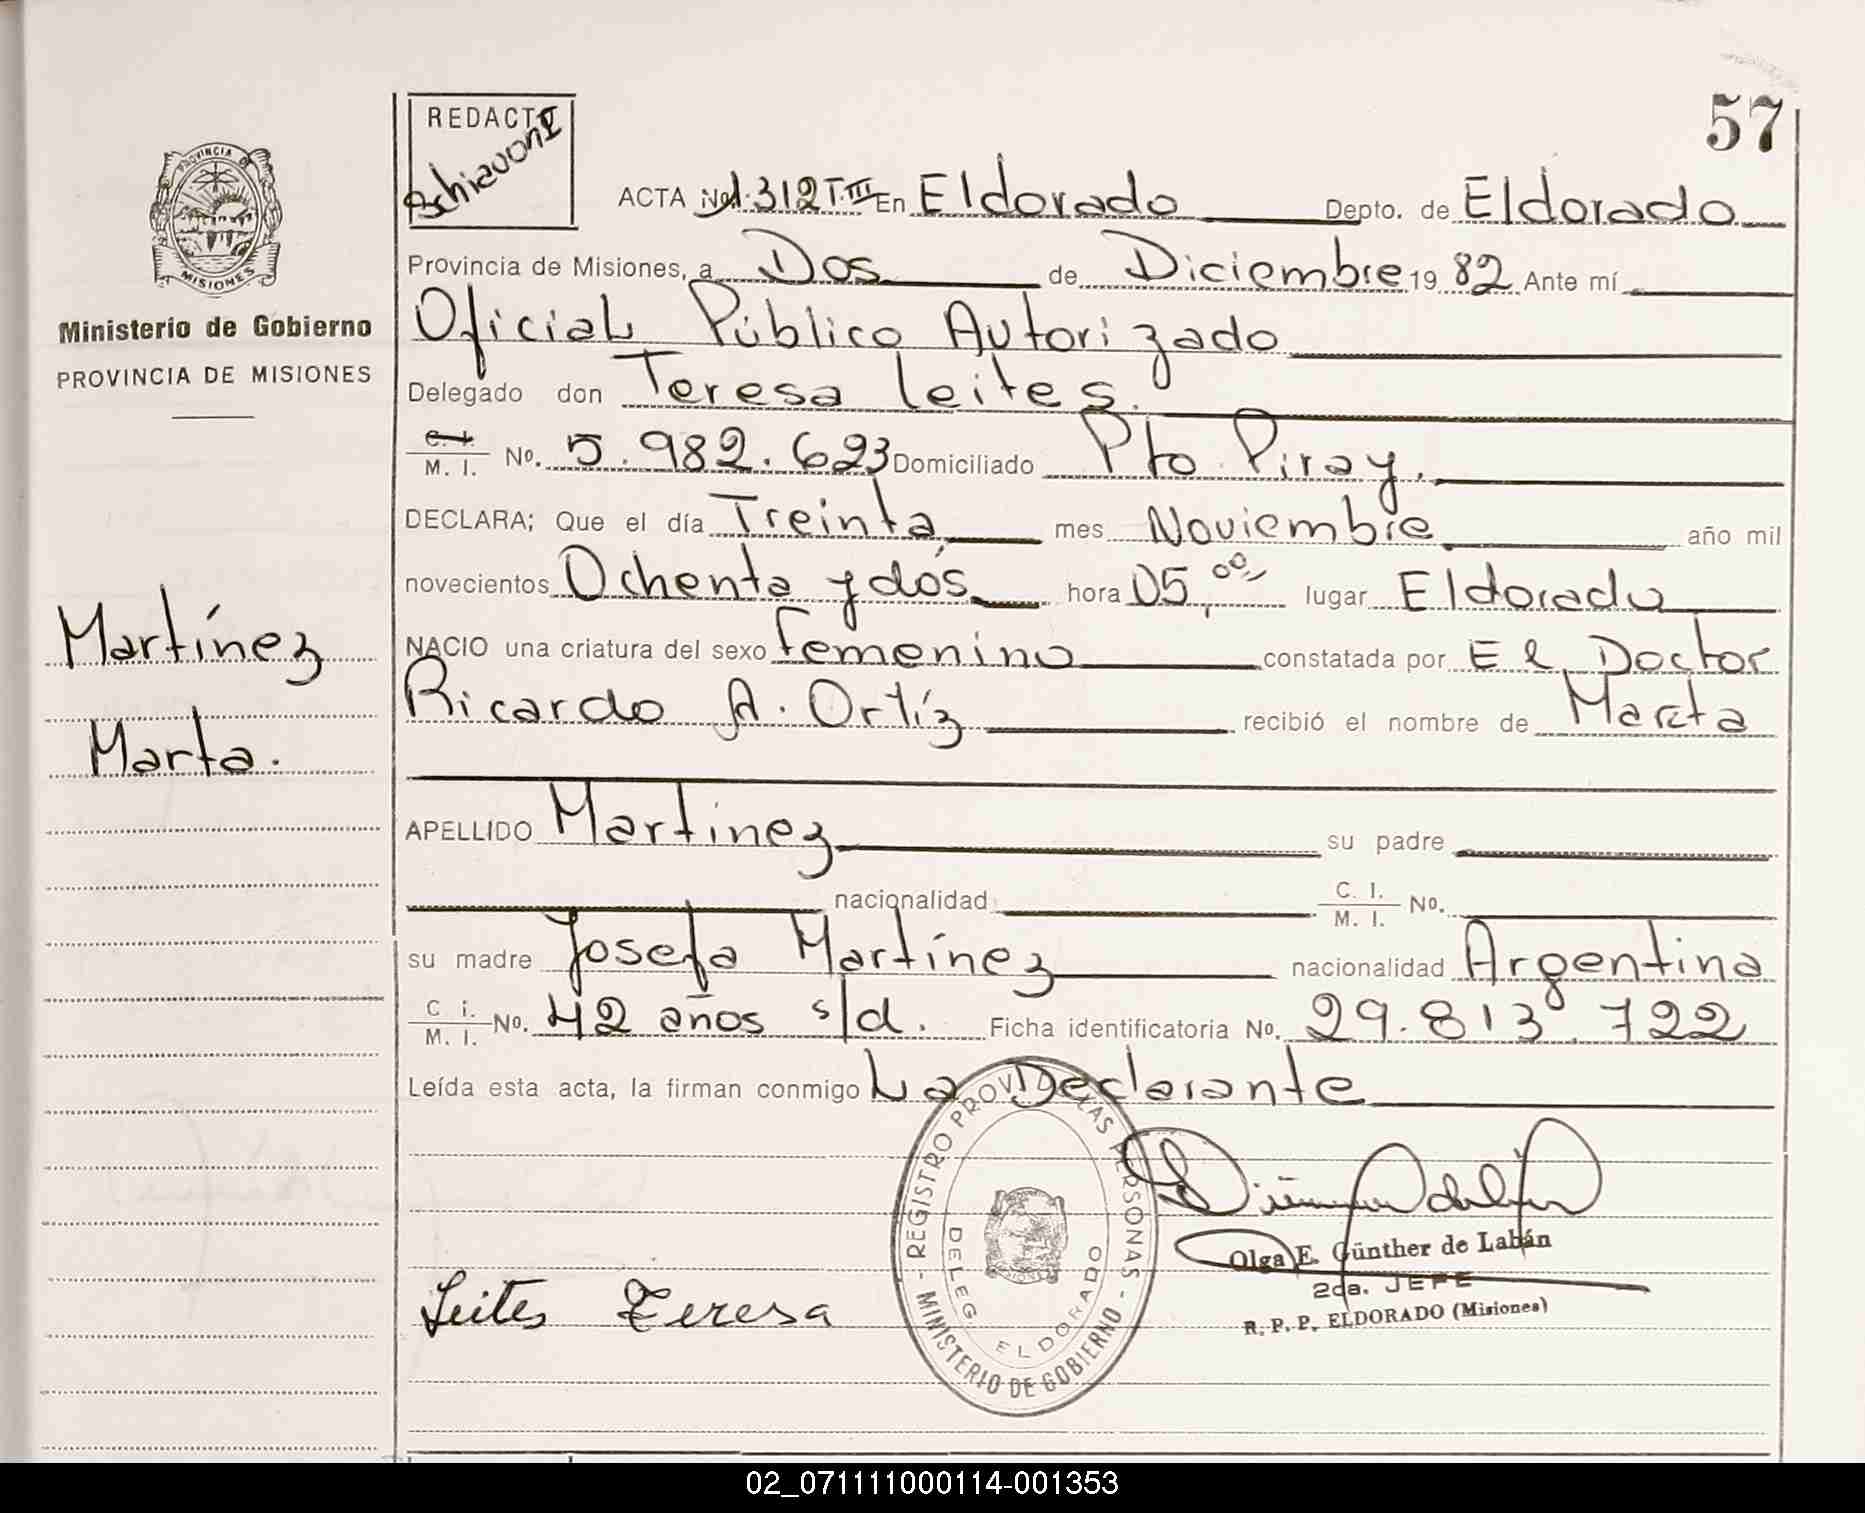 57
REDACTÓ
Schiavoni
ACTA No 1.312 T.III En Eldorado Depto. de Eldorado
Provincia de Misiones, a Dos de Diciembre 19 82 Ante mí
Oficial Público Autorizado
Delegado don Teresa Leites.
C. I.
M. I. No. 5.982.623 Domiciliado Pto Piray.
DECLARA; Que el día Treinta mes Noviembre año mil
novecientos Ochenta y dós hora 05,00 lugar Eldorado
NACIO una criatura del sexo Femenino constatada por El Doctor
Ricardo A. Ortíz recibió el nombre de Marta
APELLIDO Martínez su padre
nacionalidad C. I.
M. I. No.
su madre Josefa Martínez nacionalidad Argentina
C i.
M. I. No. 42 años s/d. Ficha identificatoria No. 29.813.722
Leída esta acta, la firman conmigo La Declarante
Leites Teresa
REGISTRO PROV. DE LAS PERSONAS - MINISTERIO DE GOBIERNO -
DELEG ELDORADO
MISIONES
Olga E. Günther de Labán
2da. JEFE
R. P. P. ELDORADO (Misiones)
PROVINCIA DE
MISIONES
Ministerio de Gobierno
PROVINCIA DE MISIONES
Martínez
Marta.
02_071111000114-001353